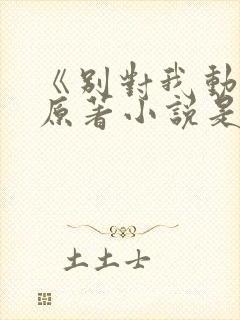 《别對我動
原著小説是
土土士